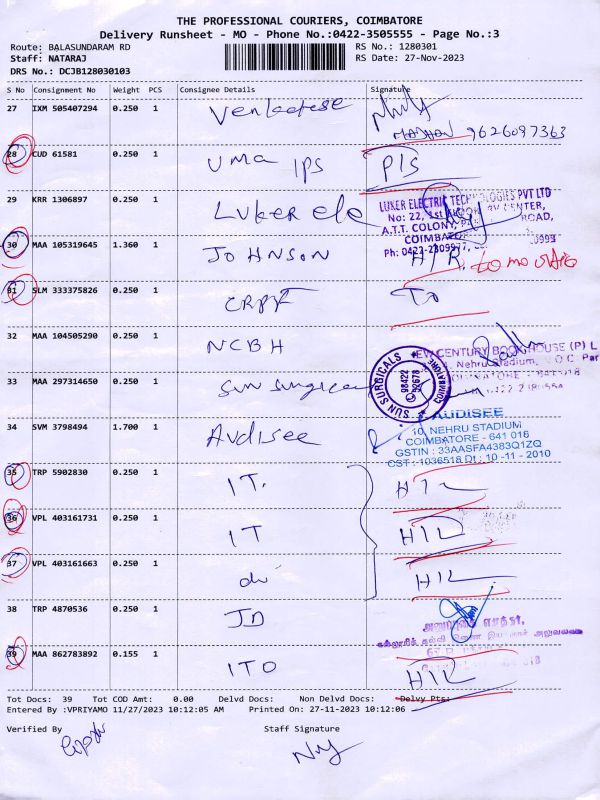 THE PROFESSIONAL COURIERS, COIMBATORE
Delivery Runsheet - MO - Phone No.:0422-3505555 - Page No.:3
Route: BALASUNDARAM RD RS No.: 1280301
Staff: NATARAJ RS Date: 27-Nov-2023
DRS No.: DCJB128030103
S No Consignment No Weight PCS Consignee Details Signature
27 IXM 505407294 0.250 1 Venkatese
9626097363
28 CUD 61581 0.250 1 UMA IPS P/S
29 KRR 1306897 0.250 1 LUKER ele
LUKER ELECTRIC TECHNOLOGIES PVT LTD
No: 22, 1st
A.T.T. COLONY, ROAD,
30 MAA 105319645 1.360 1 JOHNSON H/R
31 SLM 333375826 0.250 1 CRPF
32 MAA 104505290 0.250 1 NCBH
CENTURY BOOK HOUSE (P) L
Nehru Stadium,
33 MAA 297314650 0.250 1 SUN Surgical
SUN SURGICALS COIMBATORE
34 SVM 3798494 1.700 1 Audisee
AUDISEE
10, NEHRU STADIUM
COIMBATORE - 641 018
GSTIN : 33AASFA4383Q1ZQ
CST : 1036518 Dt : 10 -11 - 2010
35 TRP 5902830 0.250 1 IT. HIL
36 VPL 403161731 0.250 1 IT HIL
37 VPL 403161663 0.250 1 do HIL
38 TRP 4870536 0.250 1 JD
39 MAA 862783892 0.155 1 ITO HIL
Tot Docs: 39 Tot COD Amt: 0.00 Delvd Docs: Non Delvd Docs: Delvy Pts:
Entered By :VPRIYAMO 11/27/2023 10:12:05 AM Printed On: 27-11-2023 10:12:06
Verified By Staff Signature